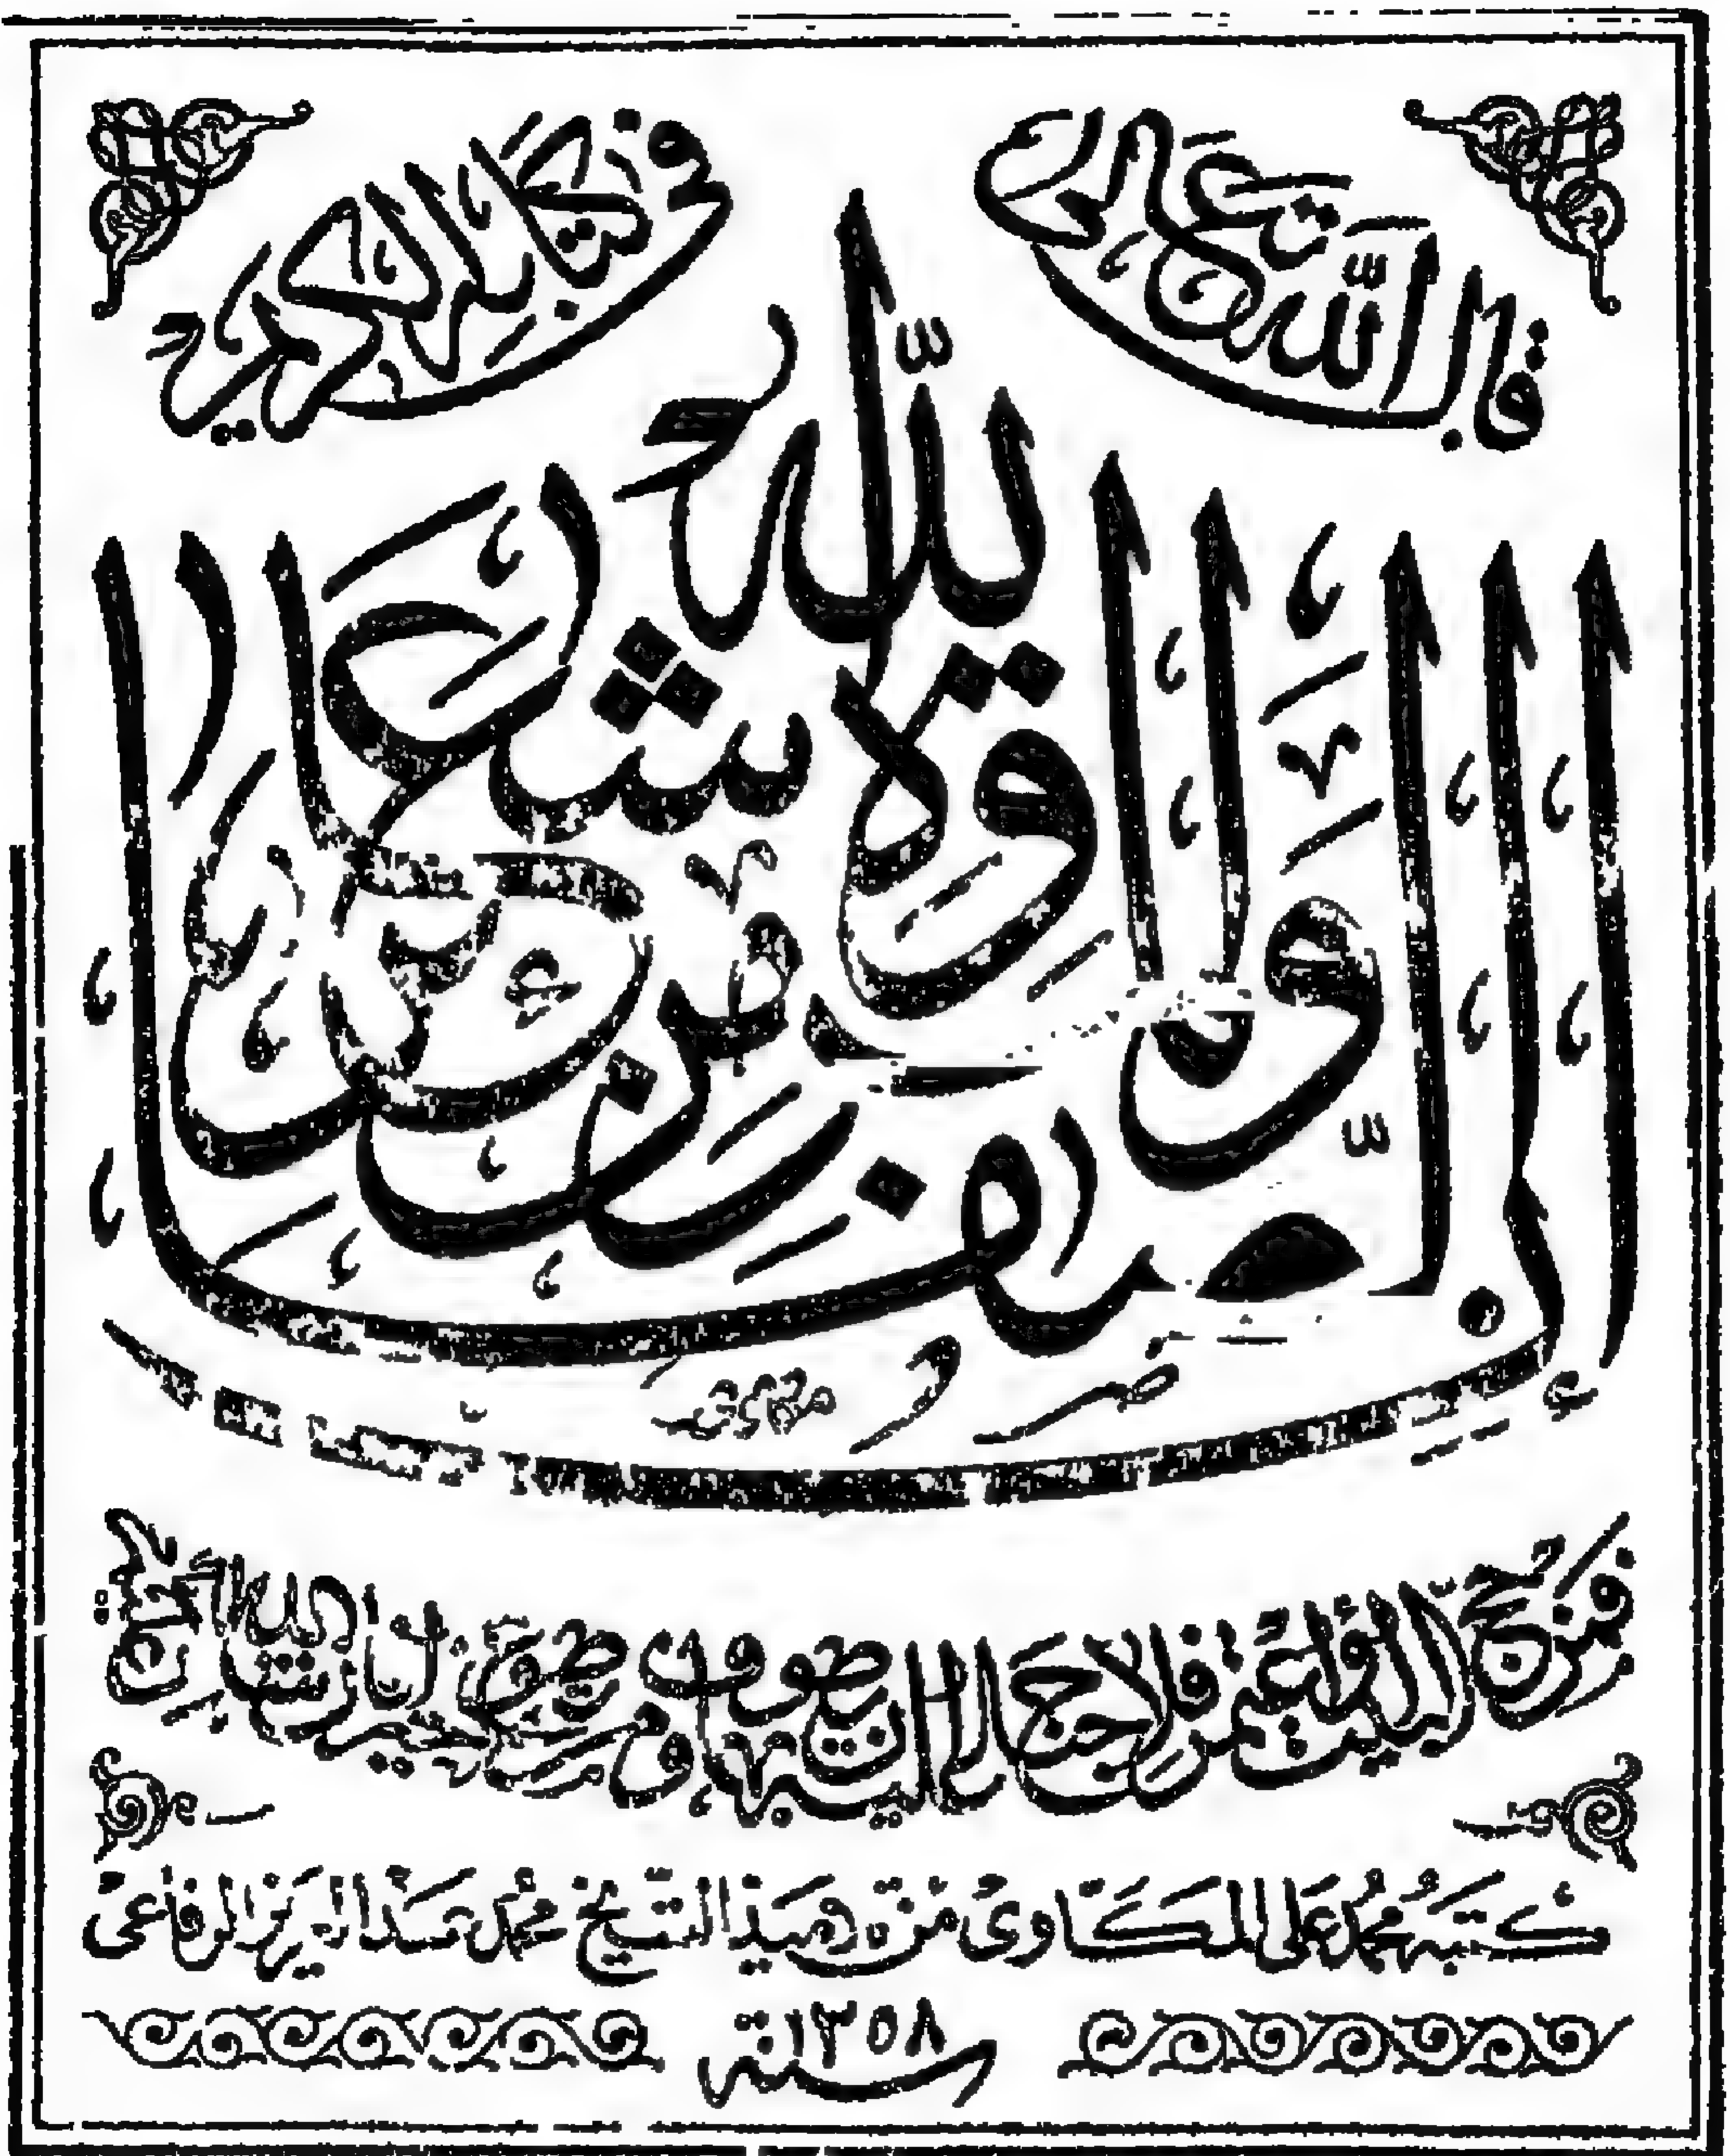 قال الله تعالى
في كتابه الكريم
إن الصفا والمروة من شعائر الله
فمن حج البيت أو اعتمر فلا جناح عليه أن يطوف بهما ومن تطوع خيرا فإن الله شاكر عليم
كتبه محمد على المكاوى من تلاميذ الشيخ محمد عبد العزيز الرفاعى
سنة ١٣٥٨